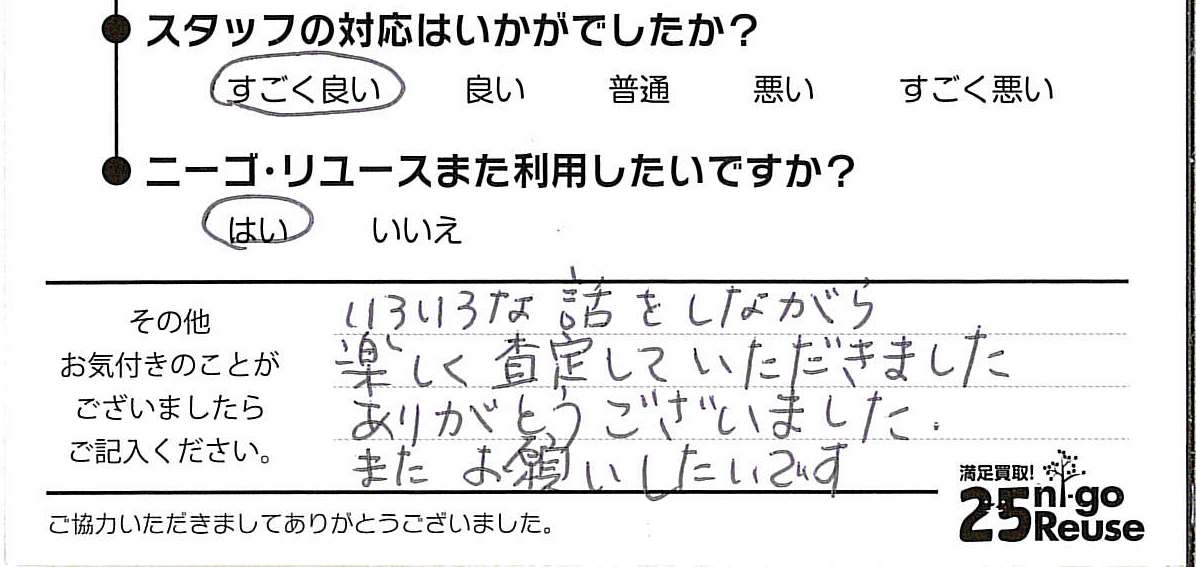 スタッフの対応はいかがでしたか？
すごく良い 良い 普通 悪い すごく悪い
ニーゴ・リユースまた利用したいですか？
はい いいえ
その他
お気付きのことが
ございましたら
ご記入ください。
いろいろな話をしながら
楽しく査定していただきました
ありがとうございました.
またお願いしたいです
ご協力いただきましてありがとうございました。
満足買取!
25 ni-go
Reuse